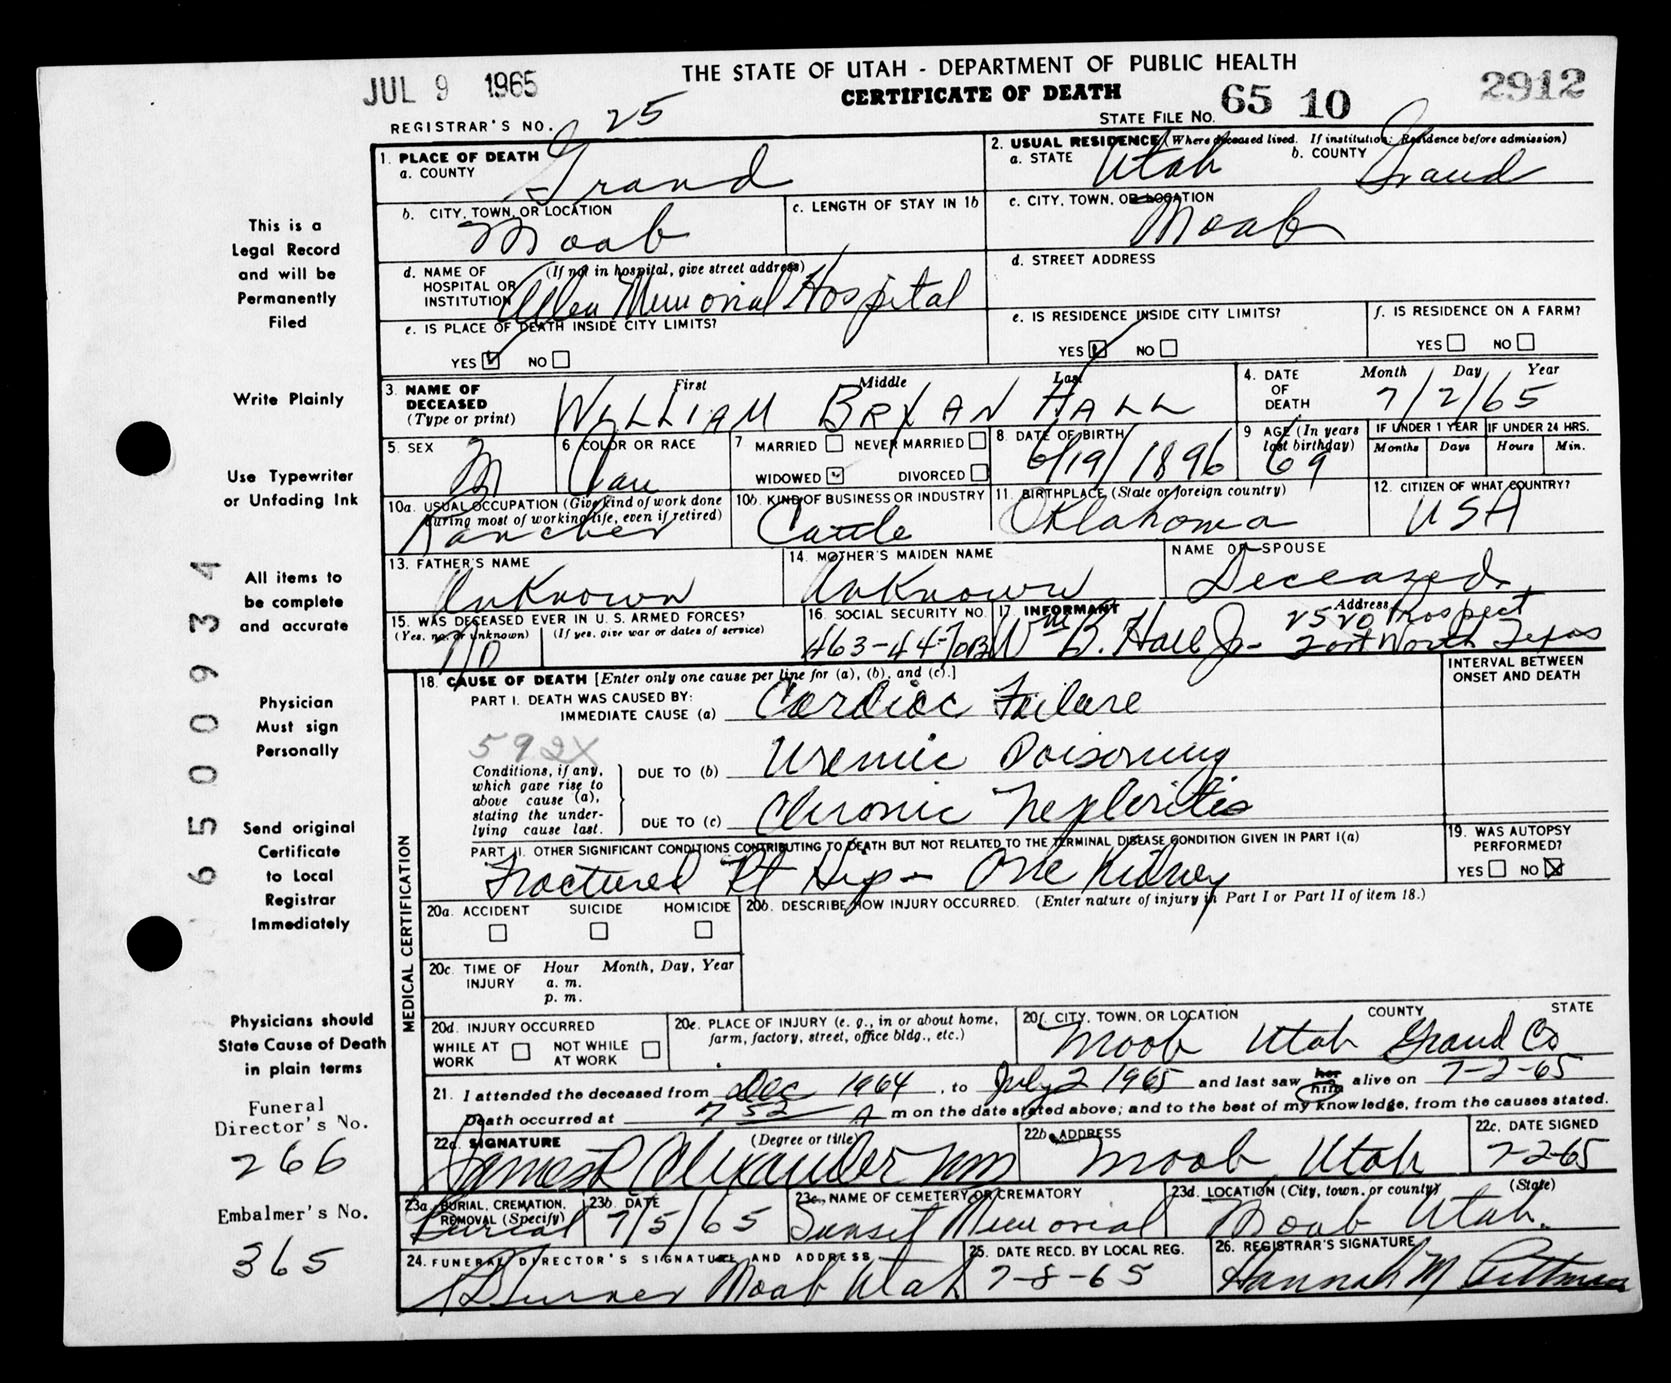 JUL 9 1965
THE STATE OF UTAH - DEPARTMENT OF PUBLIC HEALTH
CERTIFICATE OF DEATH
2912
REGISTRAR'S NO. 25
STATE FILE NO. 65 10
1. PLACE OF DEATH
a. COUNTY Grand
2. USUAL RESIDENCE (Where deceased lived. If institution: Residence before admission)
a. STATE Utah b. COUNTY Grand
b. CITY, TOWN, OR LOCATION
Moab
c. LENGTH OF STAY IN 1b
c. CITY, TOWN, OR LOCATION
Moab
d. NAME OF HOSPITAL OR INSTITUTION (If not in hospital, give street address)
Allen Memorial Hospital
d. STREET ADDRESS
e. IS PLACE OF DEATH INSIDE CITY LIMITS?
YES NO
e. IS RESIDENCE INSIDE CITY LIMITS?
YES NO
f. IS RESIDENCE ON A FARM?
YES NO
3. NAME OF DECEASED (Type or print)
First Middle Last
WILLIAM BRYAN HALL
4. DATE OF DEATH
Month Day Year
7/2/65
5. SEX
M
6 COLOR OR RACE
Cau
7 MARRIED NEVER MARRIED
WIDOWED DIVORCED
8. DATE OF BIRTH
6/19/1896
9 AGE (In years last birthday)
69
IF UNDER 1 YEAR IF UNDER 24 HRS.
Months Days Hours Min.
10a. USUAL OCCUPATION (Give kind of work done during most of working life, even if retired)
Rancher
10b. KIND OF BUSINESS OR INDUSTRY
Cattle
11. BIRTHPLACE (State or foreign country)
Oklahoma
12. CITIZEN OF WHAT COUNTRY?
USA
13. FATHER'S NAME
Unknown
14. MOTHER'S MAIDEN NAME
Unknown
NAME OF SPOUSE
Deceased
15. WAS DECEASED EVER IN U. S. ARMED FORCES?
(Yes, no, or unknown) (If yes, give war or dates of service)
No
16. SOCIAL SECURITY NO.
463-44-
17. INFORMANT Address
Wm B. Hall Jr - Prospect
Fort Worth Texas
MEDICAL CERTIFICATION
18. CAUSE OF DEATH [Enter only one cause per line for (a), (b), and (c).]
INTERVAL BETWEEN ONSET AND DEATH
PART I. DEATH WAS CAUSED BY:
IMMEDIATE CAUSE (a) Cardiac Failure
592X
Conditions, if any, which gave rise to above cause (a), stating the underlying cause last.
DUE TO (b) Uremic Poisoning
DUE TO (c) Chronic Nephritis
PART II. OTHER SIGNIFICANT CONDITIONS CONTRIBUTING TO DEATH BUT NOT RELATED TO THE TERMINAL DISEASE CONDITION GIVEN IN PART I(a)
Fractured Rt Hip - One Kidney
19. WAS AUTOPSY PERFORMED?
YES NO
20a. ACCIDENT SUICIDE HOMICIDE
20b. DESCRIBE HOW INJURY OCCURRED. (Enter nature of injury in Part I or Part II of item 18.)
20c. TIME OF INJURY Hour Month, Day, Year
a. m.
p. m.
20d. INJURY OCCURRED
WHILE AT WORK NOT WHILE AT WORK
20e. PLACE OF INJURY (e. g., in or about home, farm, factory, street, office bldg., etc.)
20f. CITY, TOWN, OR LOCATION COUNTY STATE
Moab Utah Grand Co
21. I attended the deceased from Dec 1964, to July 2 1965 and last saw her him alive on 7-2-65
Death occurred at 7 52 A m on the date stated above; and to the best of my knowledge, from the causes stated.
22a. SIGNATURE (Degree or title)
James Alexander MD
22b. ADDRESS
Moab Utah
22c. DATE SIGNED
7-2-65
23a. BURIAL, CREMATION, REMOVAL (Specify)
Burial
23b. DATE
7/5/65
23c. NAME OF CEMETERY OR CREMATORY
Sunset Memorial
23d. LOCATION (City, town, or county) (State)
Moab Utah.
24. FUNERAL DIRECTOR'S SIGNATURE AND ADDRESS
Moab Utah
25. DATE RECD. BY LOCAL REG.
7-8-65
26. REGISTRAR'S SIGNATURE
Hannah M Pittman
This is a
Legal Record
and will be
Permanently
Filed
Write Plainly
Use Typewriter
or Unfading Ink
All items to
be complete
and accurate
Physician
Must sign
Personally
Send original
Certificate
to Local
Registrar
Immediately
Physicians should
State Cause of Death
in plain terms
Funeral
Director's No.
266
Embalmer's No.
365
6500934